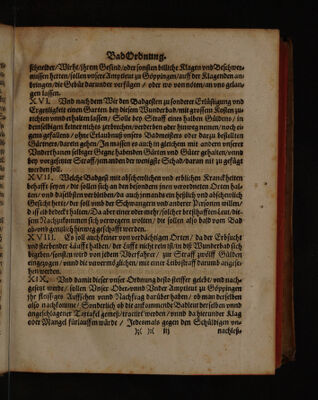 BadOrdnung.
schneider/ Wirht/ ihrem Gesind/ oder sonsten billiche Klagen vnd Beschwer-
nussen hetten/ sollen vnsere Amptleut zu Göppingen/ auff der Klagenden an-
bringen/ die Gebür darunder verfügen / oder wo von nöten/ an vns gelan-
gen lassen.
XVI. Vnd nach dem Wir den Badgesten zu sonderer Erlüstigung vnd
Ergetzligkeit einen Garten bey diesem Wunderbad/ mit grossem Kosten zu-
richten vnnd erhalten lassen / Solle bey Straff eines halben Güldens / in
demselbigen keiner nichts zerbrechen/ verderben oder hinweg nemen/ noch ei-
gens gefallens / ohne Erlaubnuß vnsers Badmeisters oder darzu bestellten
Gärtners/ darein gehen/ In massen es auch in gleichem mit andern vnserer
Vnderthanen selbiger Gegne habenden Gärten vnd Güter gehalten/ vnnd
bey vorgesetzter Straff/ jemanden der wenigste Schad/ daran mit zu gefügt
werden soll.
XVII. Welche Badgest mit abschewlichen vnd erblichen Kranckheiten
behafft seyen/ die sollen sich an den besondern jnen verordneten Orten hal-
ten/ vnd daselbsten verbleiben/ da auch jemands ein heßlich vnd abschewlich
Gesicht hette/ der soll vmb der Schwangern vnd anderer Personen willen/
daß ab bedeckt halten/ Da aber einer oder mehr/ solcher
XVIII. Es soll auch keiner von verdächtigen Orten/ da der Erbsucht
vnd sterbender Läufft halben / der Lufft nicht rein ist/ in diß Wunderbad sich
begeben/ sonsten wird von jedem Vberfahrer/ zur Straff zwölff Gülden
eingezogen / vnnd die vnvermöglichen/ mit einer Leibsstraff darumb angese-
hen werden.
XIX. Vnd damit dieser vnser Ordnung desto steiffer gelebt/ vnd nach-
gesetzt werde / sollen Vnser Ober- vnnd Vnder Amptleut zu Göppingen
jhr fleissiges Auffsehen vnnd Nachfrag darüber haben / ob man derselben
also nachkomme / Sonderlich ob die ankommende Badleut der selben vnnd
angeschlagener Taxtafel gemeß/ tractiert werden / vnnd da hierunder Klag
oder Mangel fürlauffen würde / Jedesmals gegen den Schüldigen vn-
nachleß-